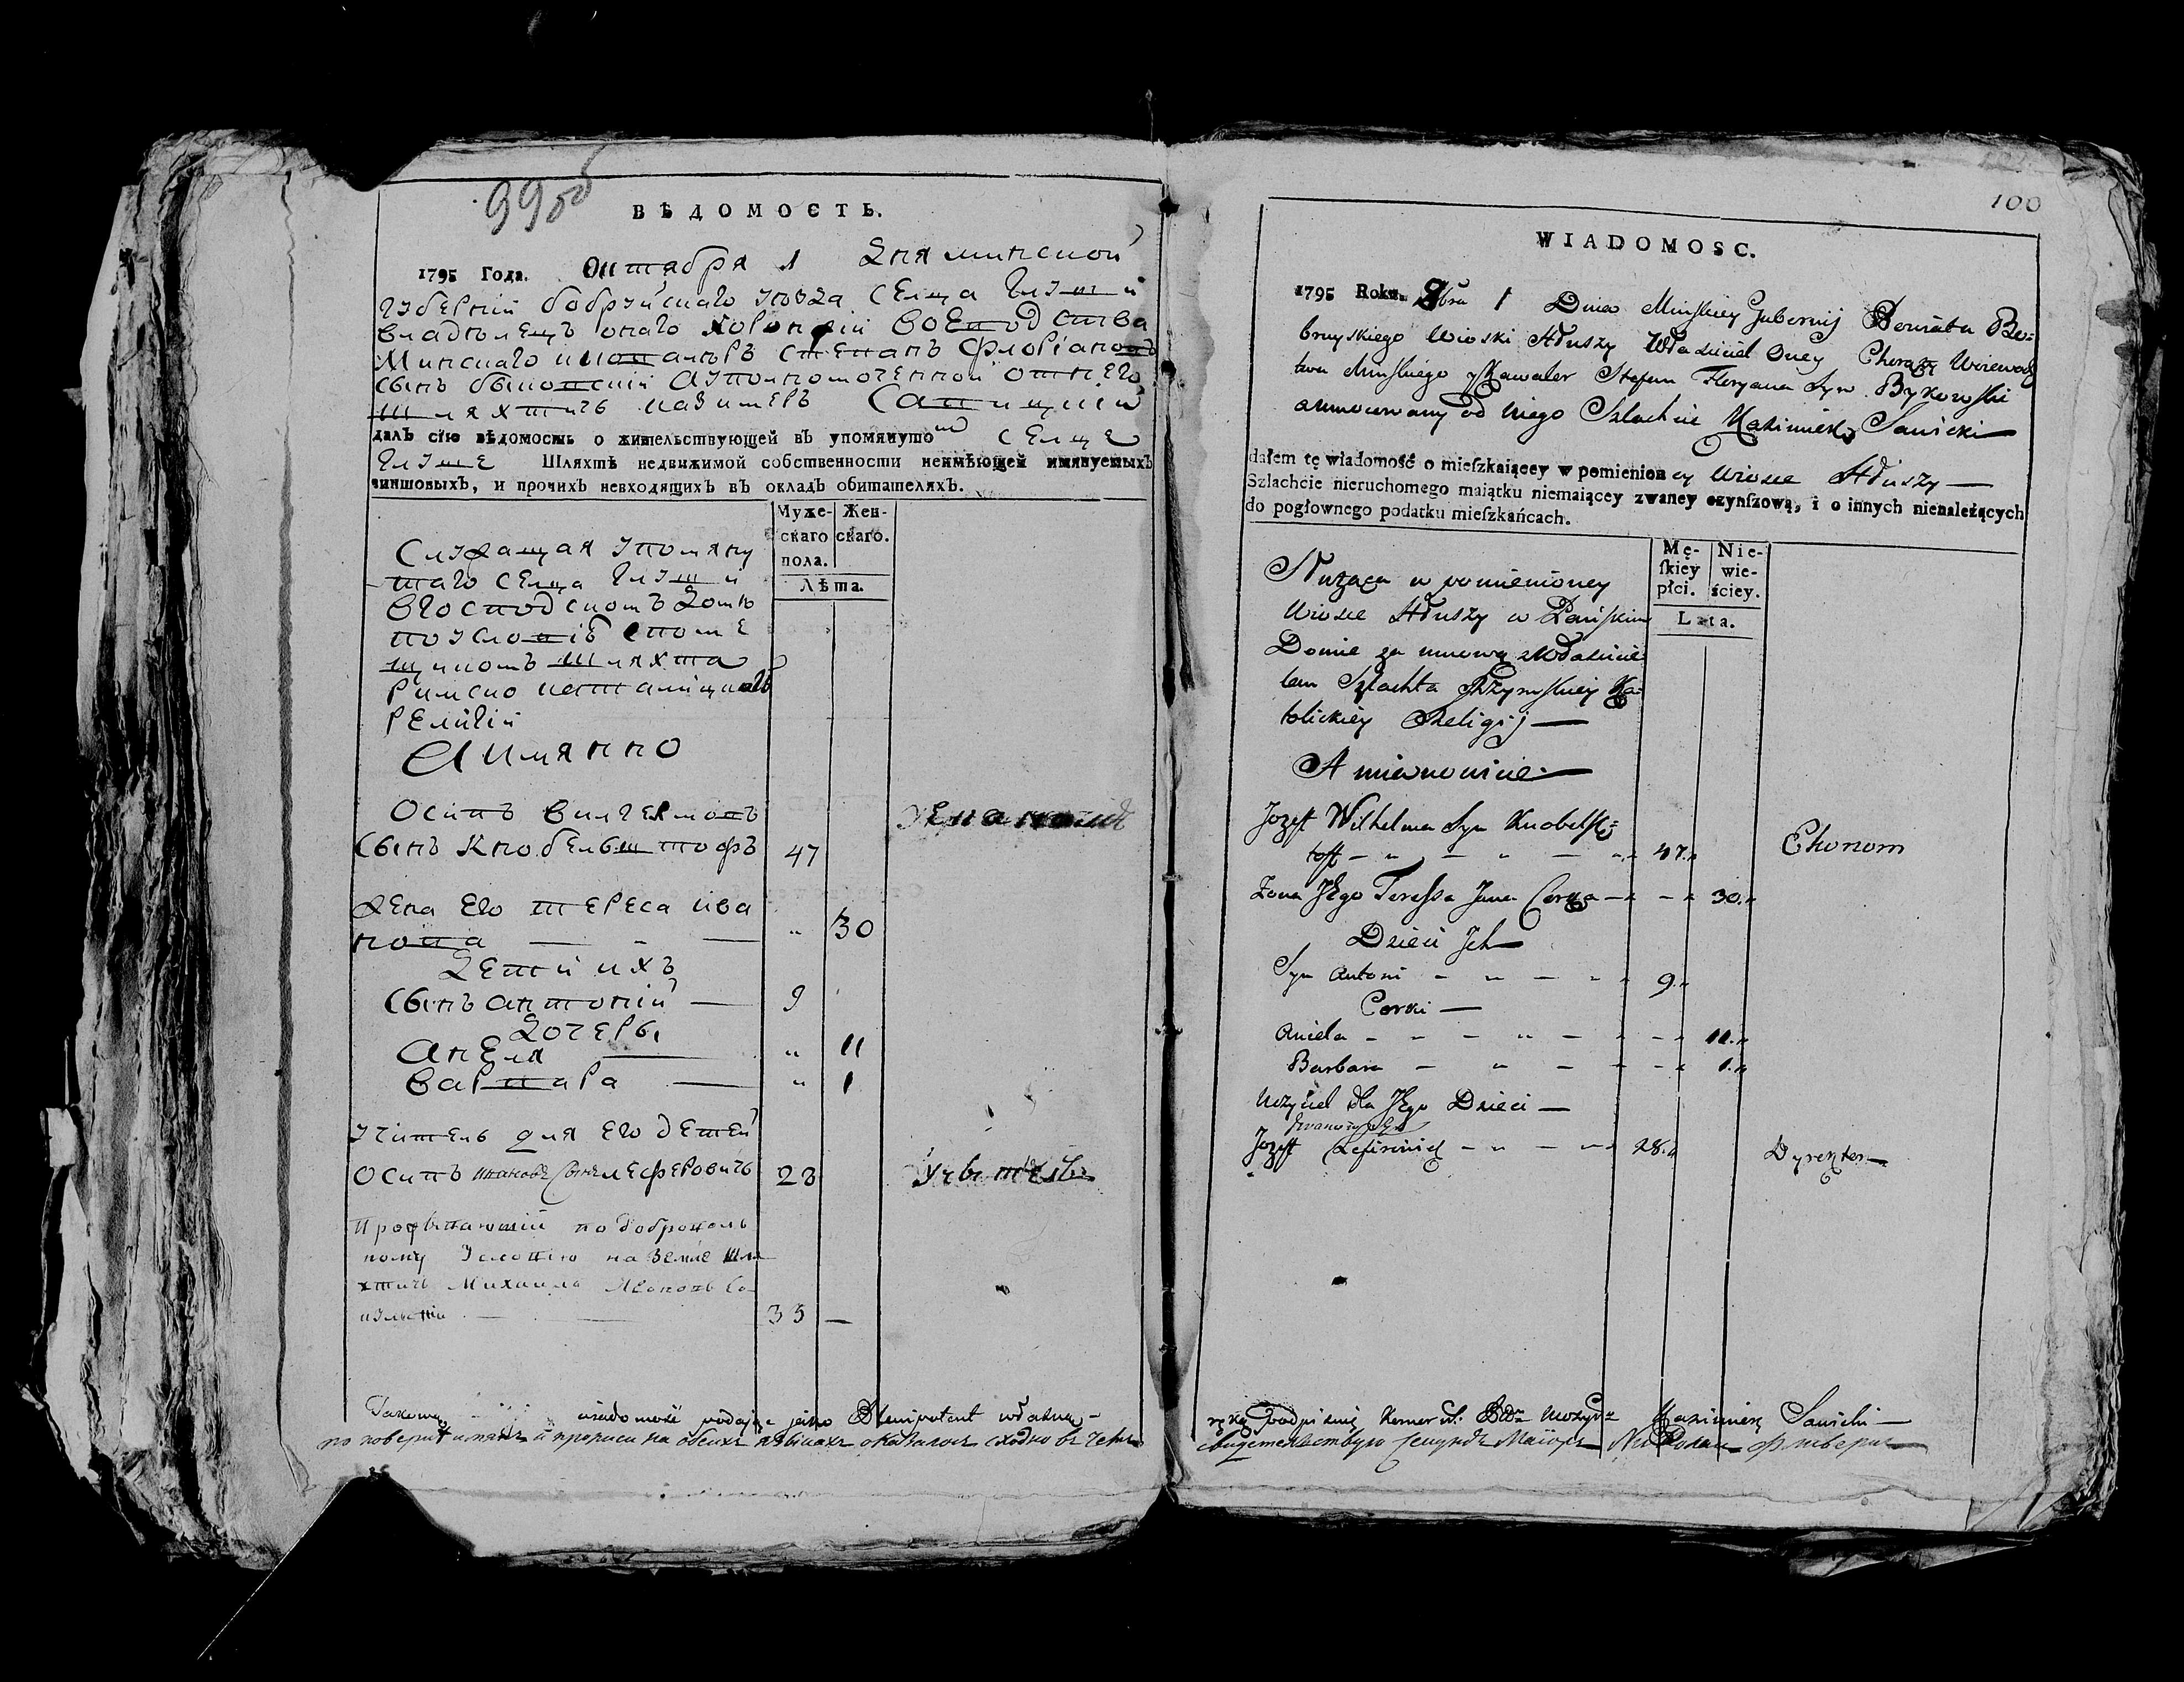 99об
ВѢДОМОСТЬ.
1795 Года. Октября 1 дня минской
губернїи бобруйскаго уѣзда селца Глуши
владѣлецъ онаго хоронжїй воеводства
Минскаго и кавалеръ Степанъ Флорїановъ
сынъ быковскїй а уполномоченной отнего
шляхтичь казимеръ Савицкїй
далъ сїю вѣдомость о жительствующей въ упомянутом селце
Глуше Шляхтѣ недвижимой собственности неимѣющей имянуемыхъ
чиншовыхъ, и прочихъ невходящихъ въ окладъ обитателяхъ.
Муже-
скаго
пола.
Жен-
скаго.
Лѣта.
Служащая упомяну
таго селца Глуши
вгосподскомъ домѣ
поусловїю споме
щикомъ шляхта
римско католицкой
религїи
А имянно
Осипъ вилгелмовъ
сынъ Кнобельштофъ 47
Экономъ
жена его тереса ива
нова — - — " 30
дети ихъ
сынъ антонїй — 9
дочеры
анеля — " 11
варвара — " 1
учитель для его детей
Осипъ ивановъ сынъ леферовичь 28
Учытель
Проживающїй по доброволь
ному условїю на земле шля
хтичь Михаила
35 —
wiadomość podaję jako Plenipotent własną
по поверке и на обеихъ языкахъ оказалось сходно въ чемъ
100
WIADOMOSC.
1795 Roku. 8bra 1 Dnia Minſkiey Gubernij Powiatu Bo-
bruyskiego Wioski Hłuszy Władziciel Oney Chorąży Wojewodz
twa Minſkiego y Kawaler Stefan Floryana Syn Bykowſki
a umocowany od niego Szlachcic Kazimierz Sawicki
dałem tę wiadomość o mieſzkaiącey w pomienion ey Wiosce Hłuszy —
Szlachcie nieruchomego maiątku niemaiącey zwaney czynſzową, i o innych nienależących
do pogłownego podatku mieſzkańcach.
Mę-
ſkiey
płci.
Nie-
wie-
ściey.
Lata.
Służąca w pomienioney
Wiosce Hłuszy w Pańſkim
Domie za umową z Władzicie
lem Szlachta Rzymſkiey Ka-
tolickiey Religij —
A mianowicie —
Jozeff Wilhelma Syn Knobelſz-
toff — " — " — " 47. "
Ekonom
Żona Jego Tereſsa Jana Corka — " — " 30. "
Dzieci Jch
Syn Antoni — " — " 9. "
Corki —
Aniela — - — " — - 11. "
Barbara — " — - 1. "
Uczyciel dla Jego Dzieci —
Jwanow Syn
Jozeff Leferowicz — " — " 28. "
Dyrektor —
ręką Podpisuię Kazimierz Sawicki —
свидетельствую секундъ Маїоръ